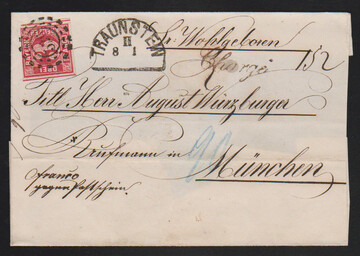 DREI
TRAUNSTEIN
II
8 1
Sr Wohlgeboren
Chargé 152
Titl Herr August Würzburger
Kaufmann in
München
franco
gegen Postschein